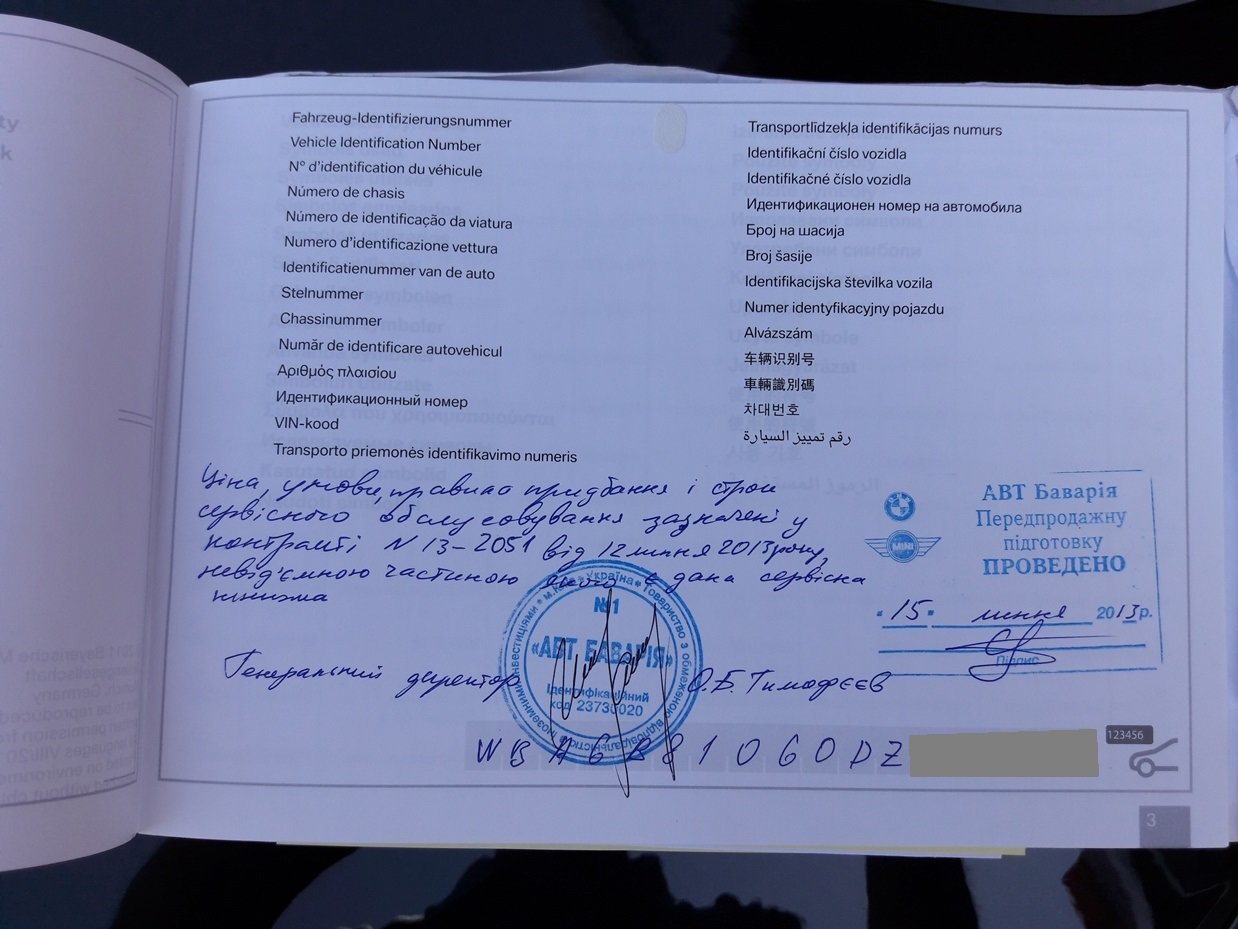 Fahrzeug-Identifizierungsnummer
Vehicle Identification Number
N° d'identification du véhicule
Número de chasis
Número de identificação da viatura
Numero d'identificazione vettura
Identificatienummer van de auto
Stelnummer
Chassinummer
Număr de identificare autovehicul
Αριθμός πλαισίου
Идентификационный номер
VIN-kood
Transporto priemonės identifikavimo numeris
Transportlīdzekļa identifikācijas numurs
Identifikační číslo vozidla
Identifikačné číslo vozidla
Идентификационен номер на автомобила
Број на шасија
Broj šasije
Identifikacijska številka vozila
Numer identyfikacyjny pojazdu
Alvázszám
车辆识别号
車輛識別碼
차대번호
رقم تمييز السيارة
Ціна, умови, правила придбання і строк
сервісного обслуговування зазначені у
контракті N 13-2051 від 12 липня 2013 року,
невід'ємною частиною якого є дана сервісна
книжка
АВТ Баварія
Передпродажну
підготовку
ПРОВЕДЕНО
MINI
"15" липня 2013р.
Підпис
Генеральний директор О.Б. Тимофєєв
Україна * Товариство з обмеженою відповідальністю з іноземними інвестиціями * м.Київ *
№1
«АВТ БАВАРІЯ»
Ідентифікаційний
код 23735020
WBA6B81060DZ
123456
3